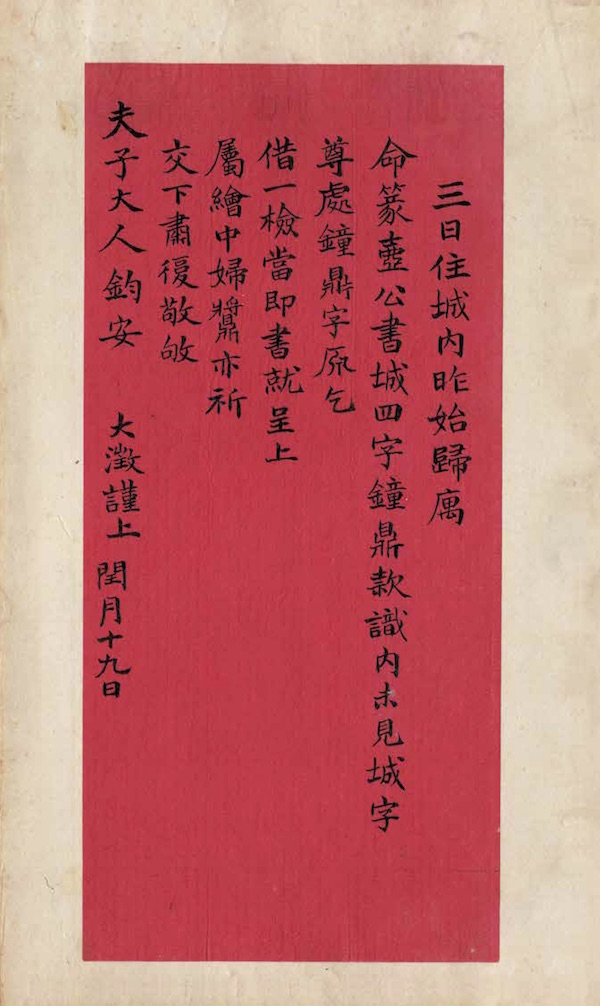 三日住城内昨始歸庽
命篆壺公書城四字鐘鼎款識内未見城字
尊處鐘鼎字原乞
借一檢當即書就呈上
屬繪中婦䵼亦祈
交下肅復敬敂
夫子大人鈞安
大澂謹上 閏月十九日